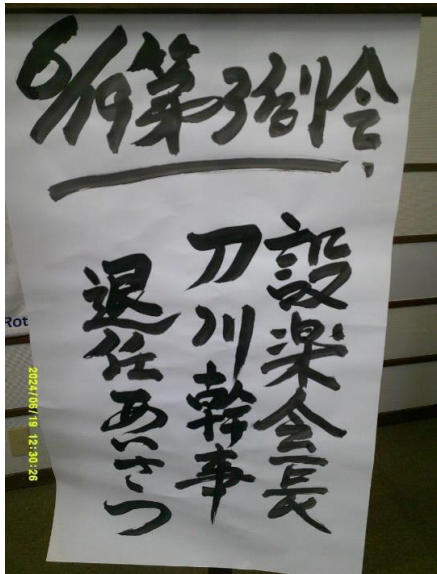 6/19第3例会
設楽会長
刀川幹事
退任あいさつ
Rot
2024/06/19 12:30:26